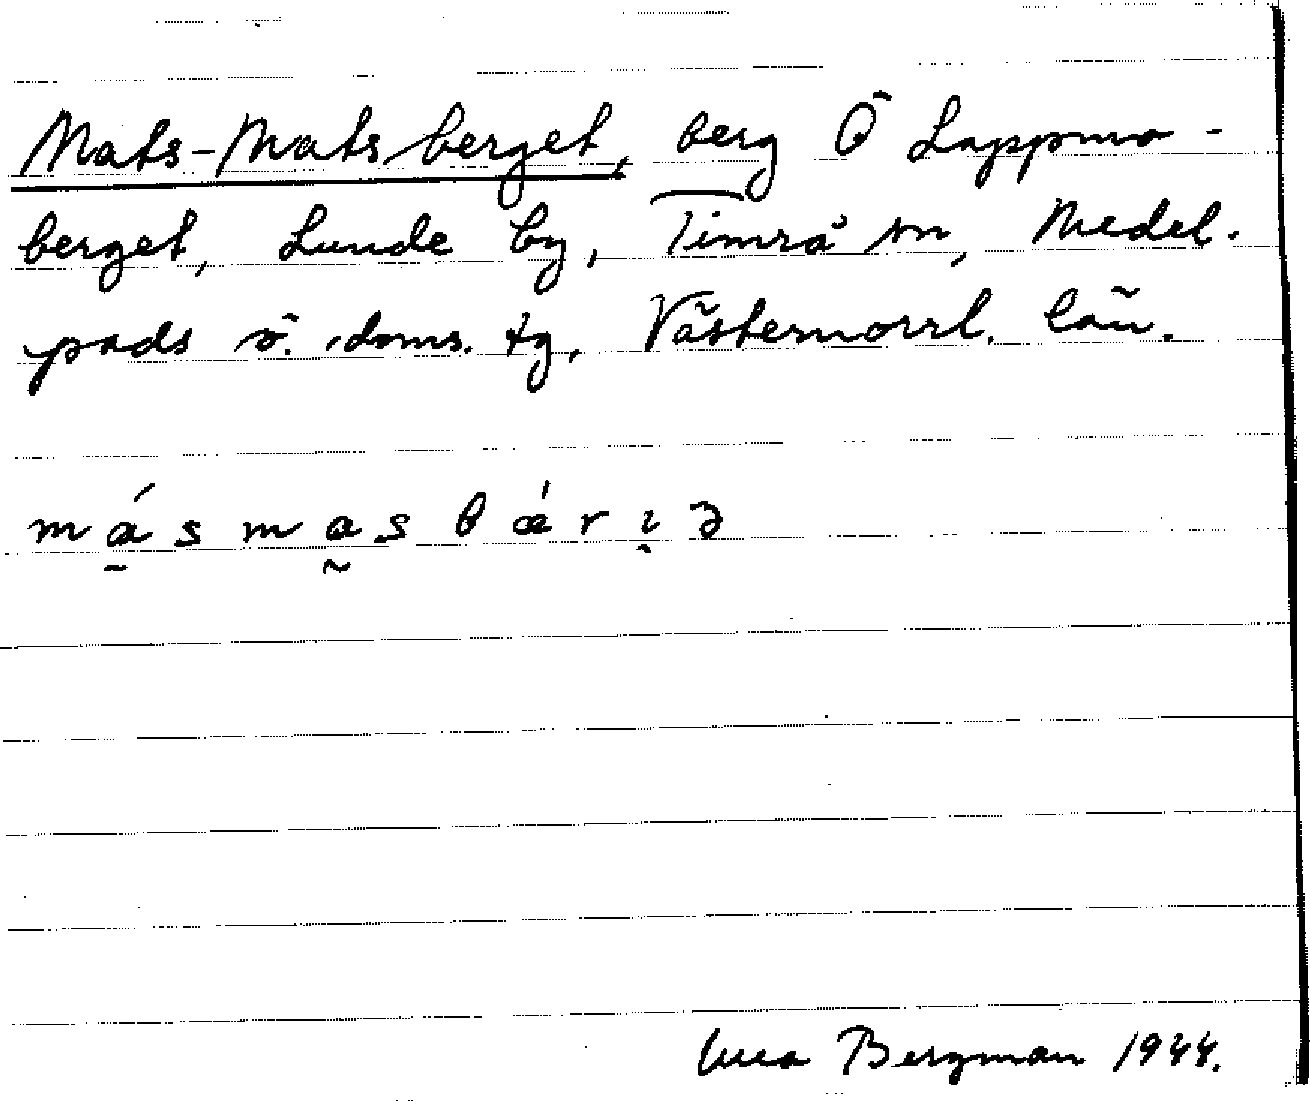 Mats-Matsberget, berg Ö Lappmo-
berget, Lunde by, Timrå sn, Medel-
pads ö. doms. tg, Västernorrl. län.
másmasbárɩə
Bergman 1944.